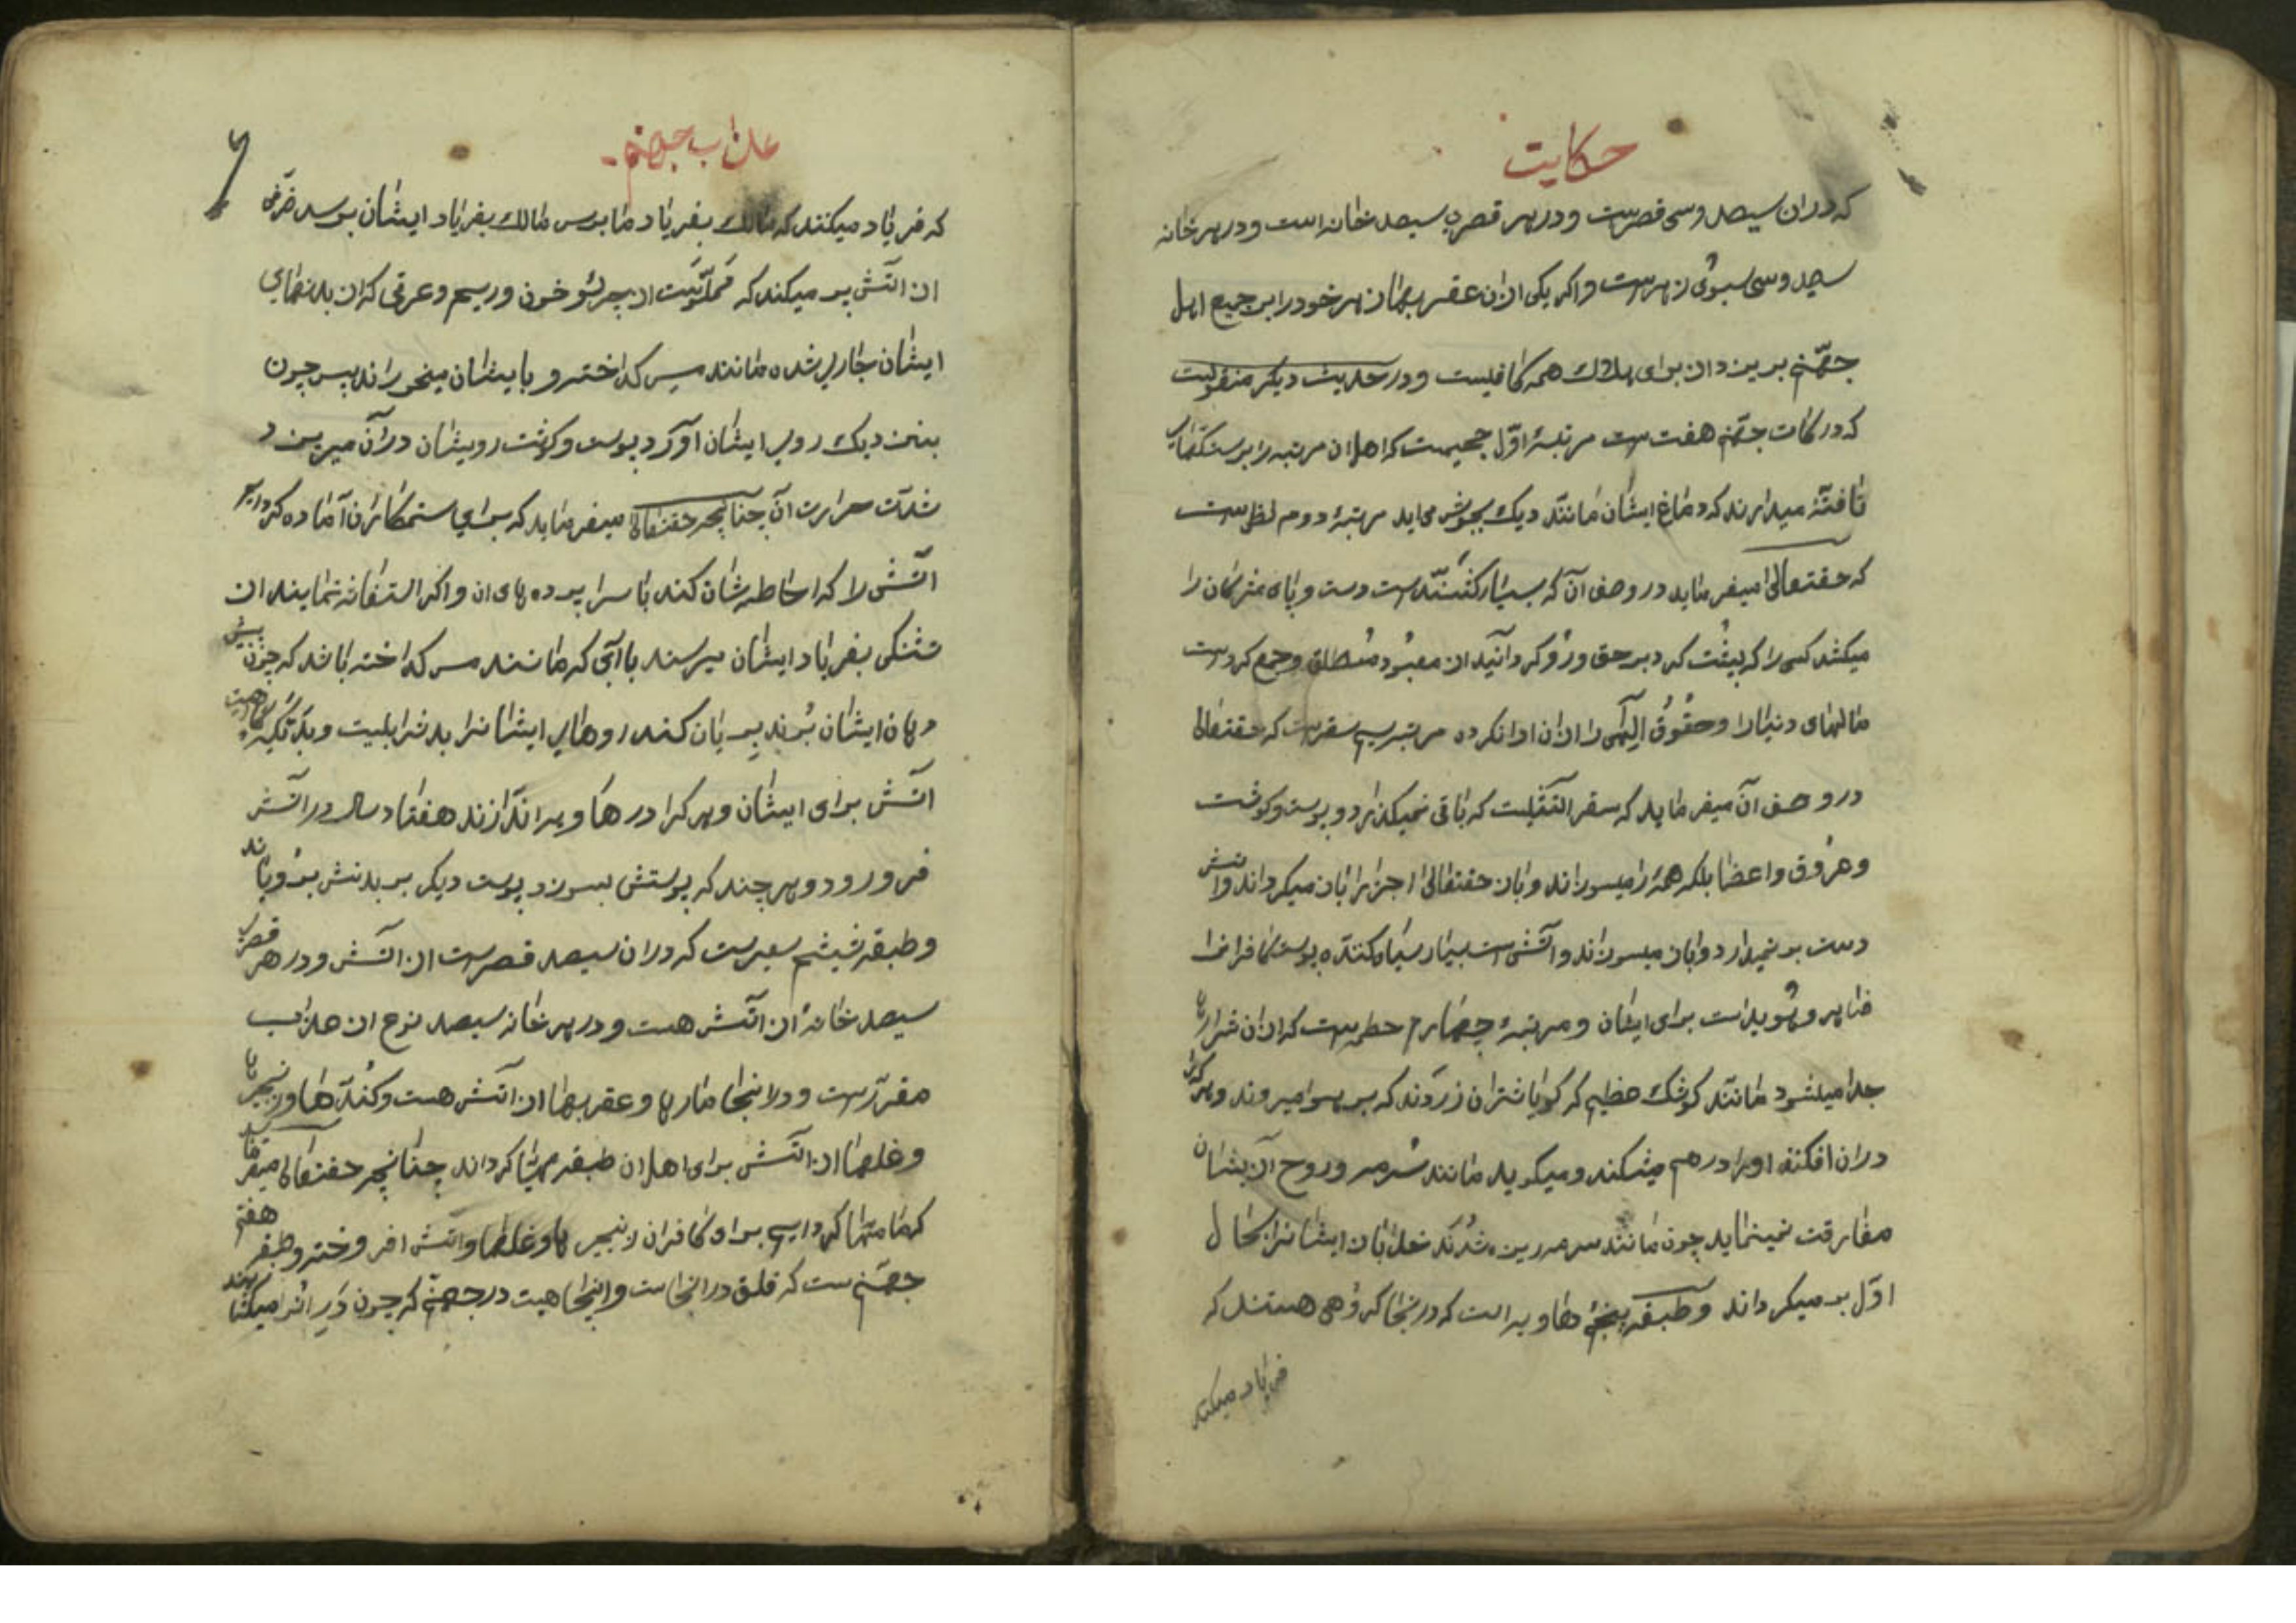 حکایت
که دران سیصد و سی قصرست و در هر قصری سیصد خانه است و در هر خانه
سیصد و سی سبوی زهرست و اکر یکی ازان عقربها زهر خود را بر جمیع اهل
جهنّم بریزد از برای هلاک همه کافیست و در حدیث دیکر منقولیست
که درکات جهنّم هفت است مرتبهٔ اوّل جحیمست که اهل ان مرتبه را بر سنکهای
تافته میدارند که دماغ ایشان مانند دیک بجوش می اید مرتبهٔ دوم لظی است
که حقتعالی میفرماید در وصف آن که بسیار کشنده است دست و پای مشرکان را
میکشد کسی را که پشت کرد بر حق و رو کردانید از معبود مطلق و جمع کردست
مالهای دنیا را و حقوق الهی را ازان ادا نکرده مرتبه سیم سقرست که حقتعالی
در وصف آن میفرماید که سقر اتشیست که باقی نمیکذارد و پوست و کوشت
و عروق و اعضا بلکه همه را میسوزاند و باز حقتعالی اجزا را باز میکرداند و اتش
دست بر نمیدارد و باز میسوزاند و آتشی است بسیار سیاه کننده پوست کافرانرا
ظاهر و هویداست برای ایشان و مرتبهٔ چهارم حطمه است که ازان شرارها
جدا میشود مانند کوشک عظیم که کویا شتران زردند که بر هوا میروند و هر که را
دران افکنند او را در هم میشکند و میکوبد مانند سرمه و روح از ایشان
مفارقت نمینماید چون مانند سرمه ریزه شدند خدا باز ایشانرا بحال
اوّل بر میکرداند و طبقه پنجم هاویه است که در انجا کروهی هستند که
فریاد میکنند
عذاب جهنم
که فریاد میکنند که مالک بفریاد ما برس مالک بفریاد ایشان برسد ظرفی
از اتش پر میکند که مملوّست از چرک و خون و ریم و عرقی که از بدنهای
ایشان جاری شده مانند مس کداخته و بایشان میخوراند پس چون
بنزدیک روی ایشان اورد پوست و کوشت رویشان درآن میریزد
شدّت حرارت آن چنانچه حقتعالی میفرماید که برای ستمکاران آماده کرده ایم
اتشی را که احاطه شان کند با سرا پرده های ان و اکر استغاثه نمایند از
تشنکی بفریاد ایشان میرسند با آبی که مانند مس کداخته باشد که چون پیش
دهان ایشان برند بریان کند روهای ایشانرا بد شرابیست و بد تکیه کاهیست
اتش برای ایشان و هر کرا در هاویه اندازند هفتاد سال در اتش
فرو رود و هر چند که پوستش بسوزد پوست دیکر بر بدنش برویانند
و طبقه ششم سعیرست که دران سیصد قصرست از اتش و در هر قصری
سیصد خانهٔ از اتش هست و در هر خانه سیصد نوع از عذاب
مقرّرست و در انجا مارها و عقربها از اتش هست و کنده ها و زنجیرها
و غلها از اتش برای اهل ان طبقه مهیّا کرداند چنانچه حقتعالی میفرماید
که ما مهیا کرده ایم برای کافران زنجیرها و غلها و اتش افروخته و طبقه هفتم
جهنّم است که فلق در انجاست و انجا هیست در جهنّم که چون در انرا میکشایند